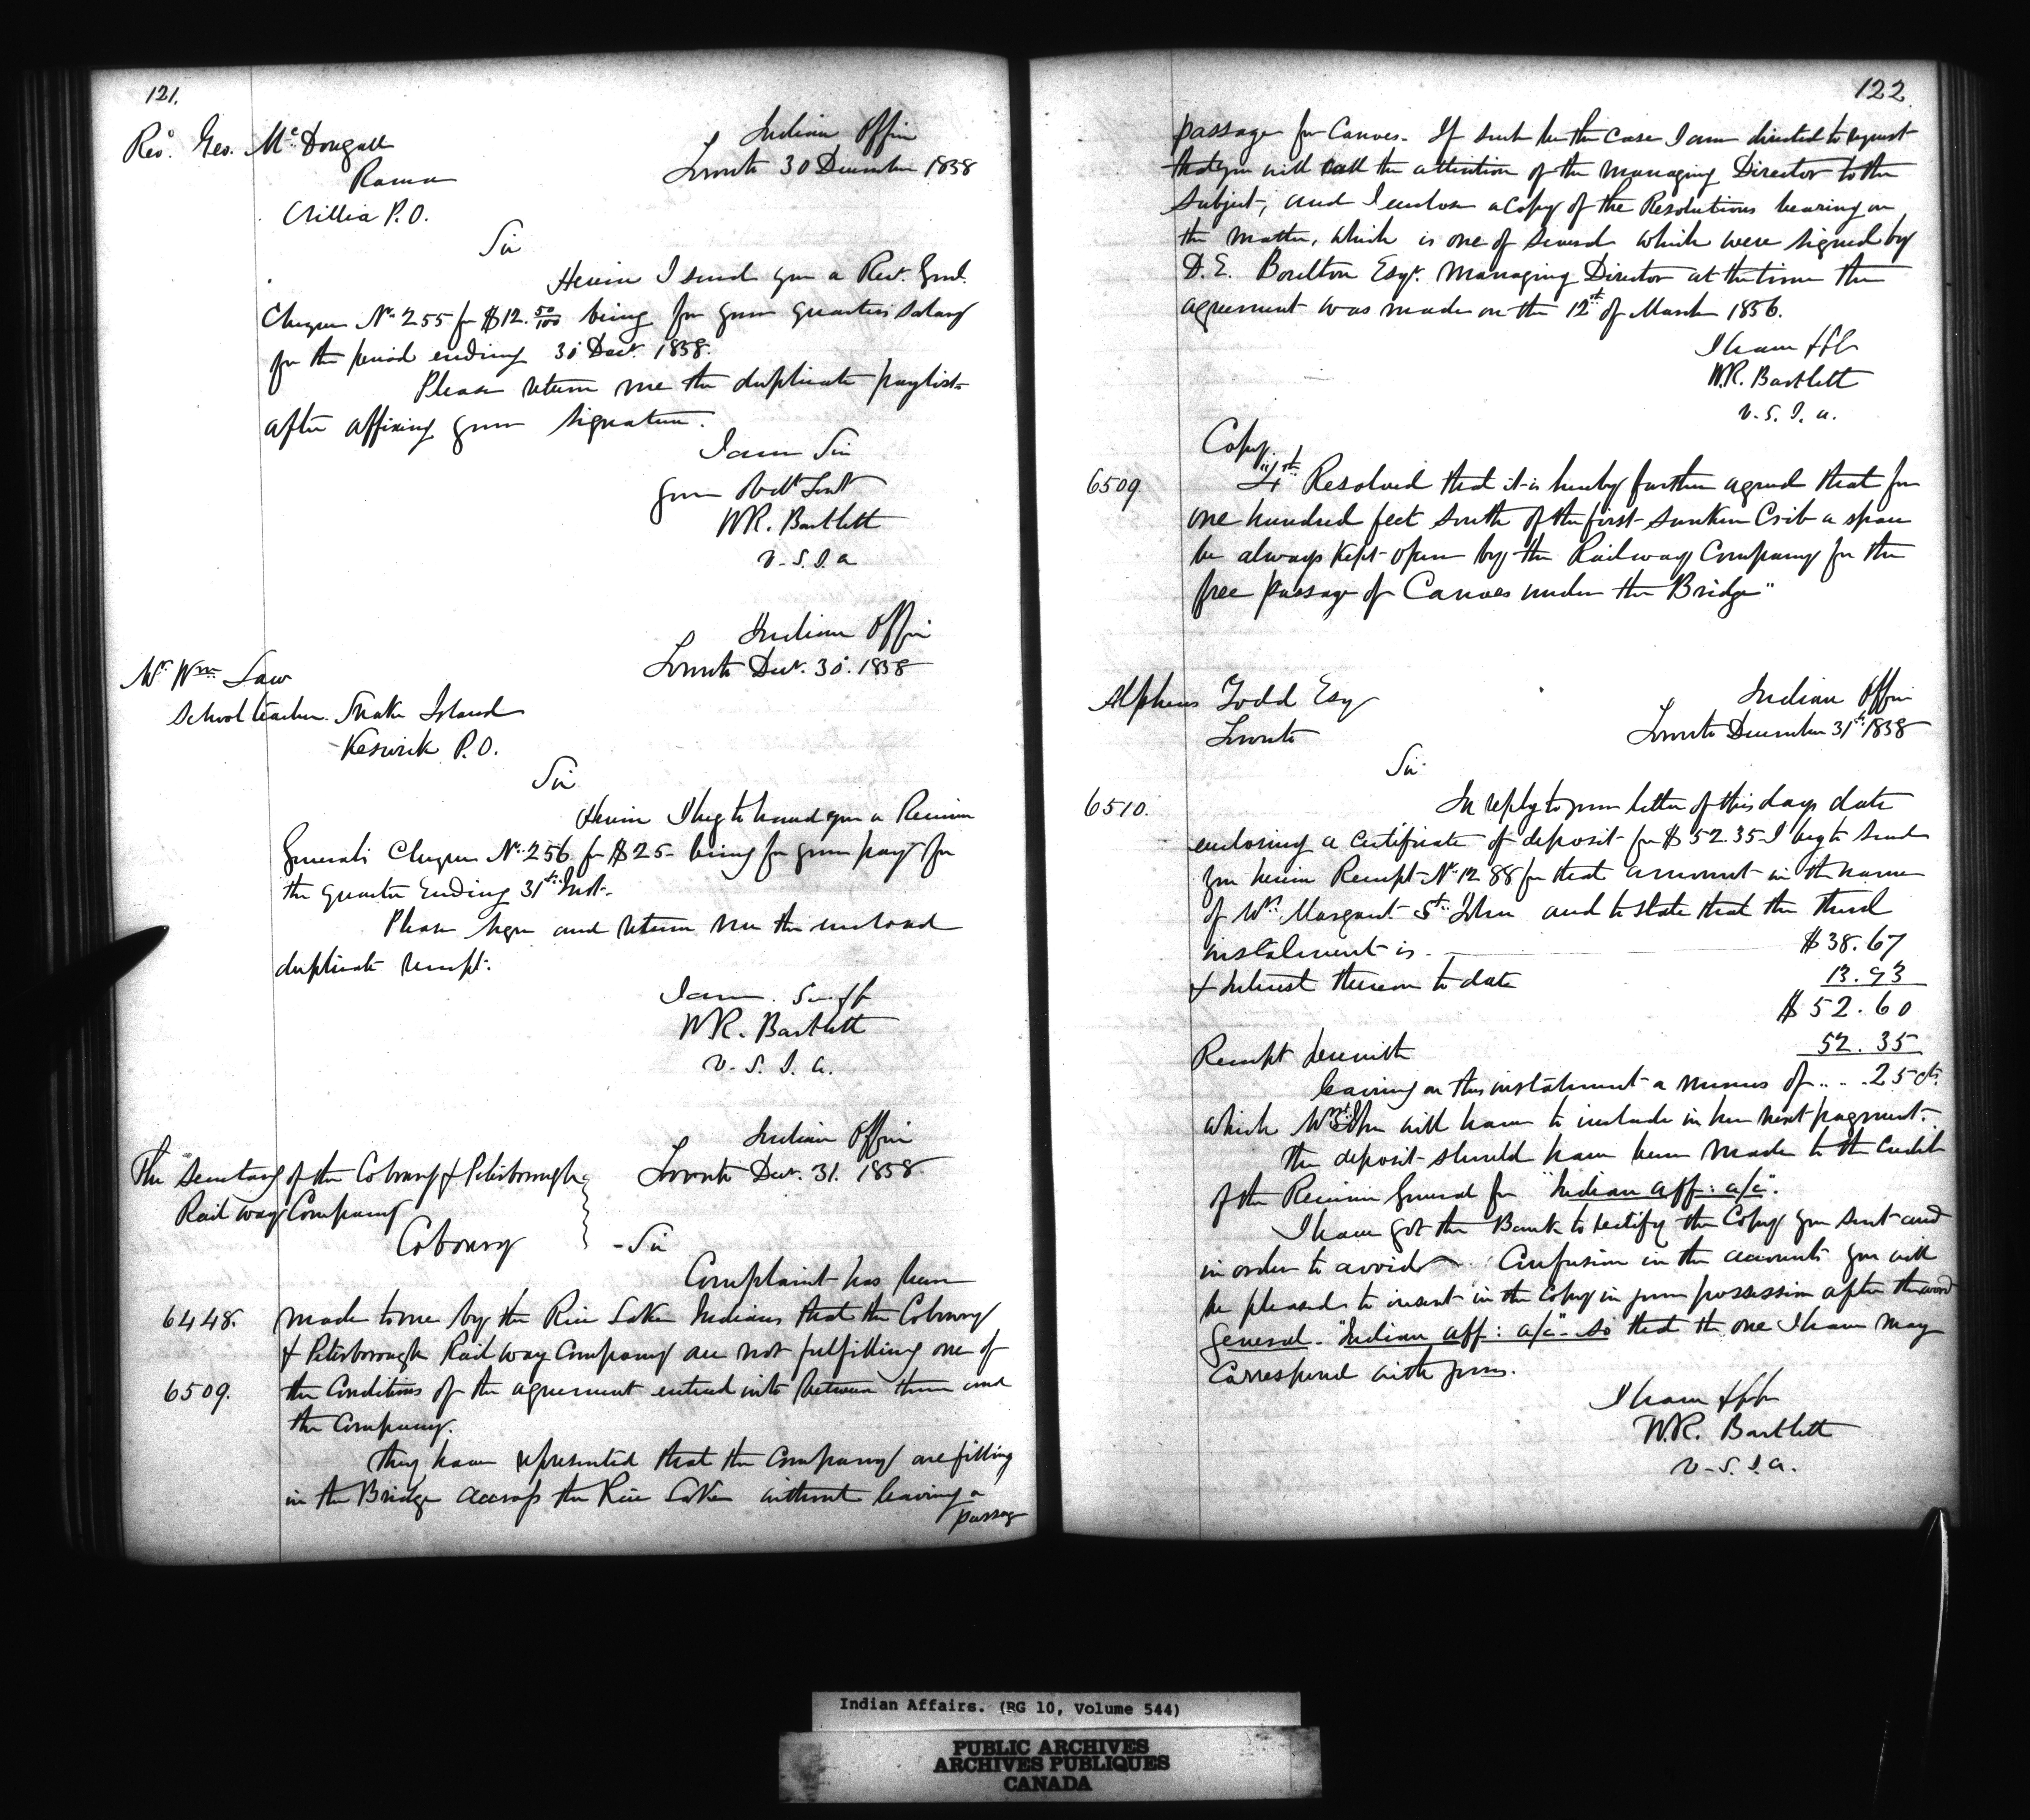 121.
Revd. Geo. McDougall
Rama
Orillia P.O.
Indian Office
Toronto 30 December 1858
Sir
Herein I send you a Recr. Genl.
Cheque No. 255 for $12. 50/100 being for your quarters salary
for the period ending 31 Decr. 1858.
Please return me the duplicate paylist
after affixing your signature.
I am Sir
Your Obdt Servt
W.R. Bartlett
V.S.I.A
Indian Office
Toronto Decr. 30. 1858
Mr. Wm. Law
School teacher. Snake Island
Keswick P.O.
Sir
Herein I beg to hand you a Receiver
Generals Cheque No. 256 for $25 - being for your pay for
the quarter Ending 31st Inst.
Please sign and return me the enclosed
duplicate receipt.
I am. Sir &c
W.R. Bartlett
V.S.I.A.
Indian Office
Toronto Decr. 31. 1858
The Secretary of the Cobourg & Peterborough
Railway Company
Cobourg
- Sir
Complaint has been
6448. made to me by the Rice Lake Indians that the Cobourg
& Peterborough Railway Company are not fulfilling one of
6509. the Conditions of the agreement entered into between them and
the Company.
They have represented that the Company are filling
in the Bridge across the Rice Lake without leaving a
passage
122
passage for Canoes. If such be the case I am directed to request
that you will call the attention of the Managing Director to the
subject, and I enclose a copy of the Resolutions bearing on
the matter, which is one of several which were signed by
D.E. Boulton Esqr. Managing Director at the time the
agreement was made on the 12th of March 1856.
I have &c
W.R. Bartlett
V.S.I.A.
Copy.
6509. "4th Resolved that it is hereby further agreed that for
one hundred feet South of the first sunken Crib a space
be always kept open by the Railway Company for the
free passage of Canoes under the Bridge"
Alpheus Todd Esq
Toronto
Indian Office
Toronto December 31st 1858
Sir
6510. In reply to your letter of this days date
enclosing a certificate of deposit for $52.35 I beg to send
you herein Receipt No. 1288 for that amount in the name
of Mrs. Margaret St. John and to state that the third
instalment is $38.67
& Interest thereon to date 13.93
$52.60
Receipt herewith 52.35
leaving on this instalment a minus of .. .. 25 cts.
which Mrs. St. John will have to include in her next payment.
The deposit should have been made to the credit
of the Receiver General for "Indian Aff: a/c".
I have got the Bank to rectify the Copy you sent and
in order to avoid confusion in the accounts you will
be pleased to insert in the Copy in your possession after the word
General - "Indian Aff: a/c" - so that the one I have may
correspond with yours.
I have &c
W.R. Bartlett
V.S.I.A.
Indian Affairs. (RG 10, Volume 544)
PUBLIC ARCHIVES
ARCHIVES PUBLIQUES
CANADA